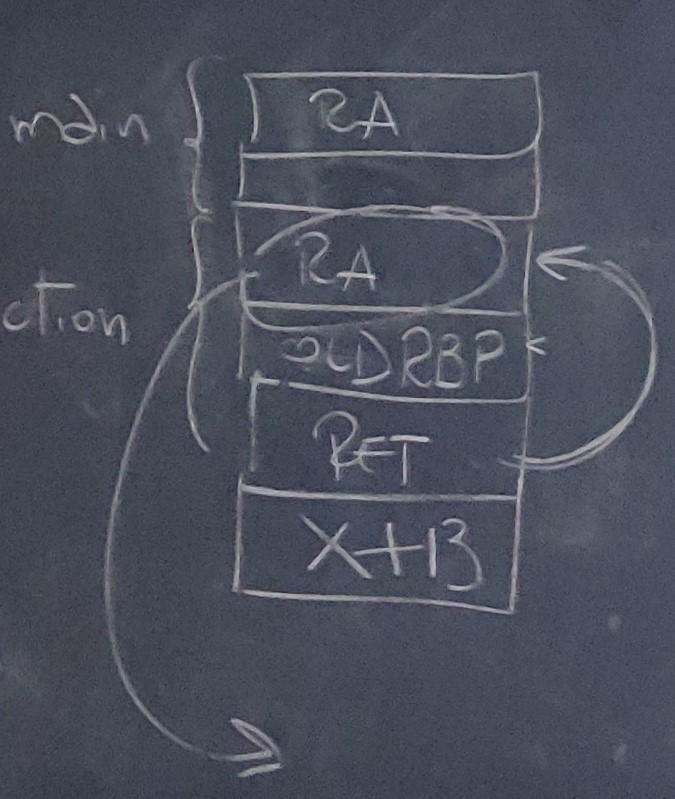 main
RA
RA
ction
OLD RBP
RET
X+13